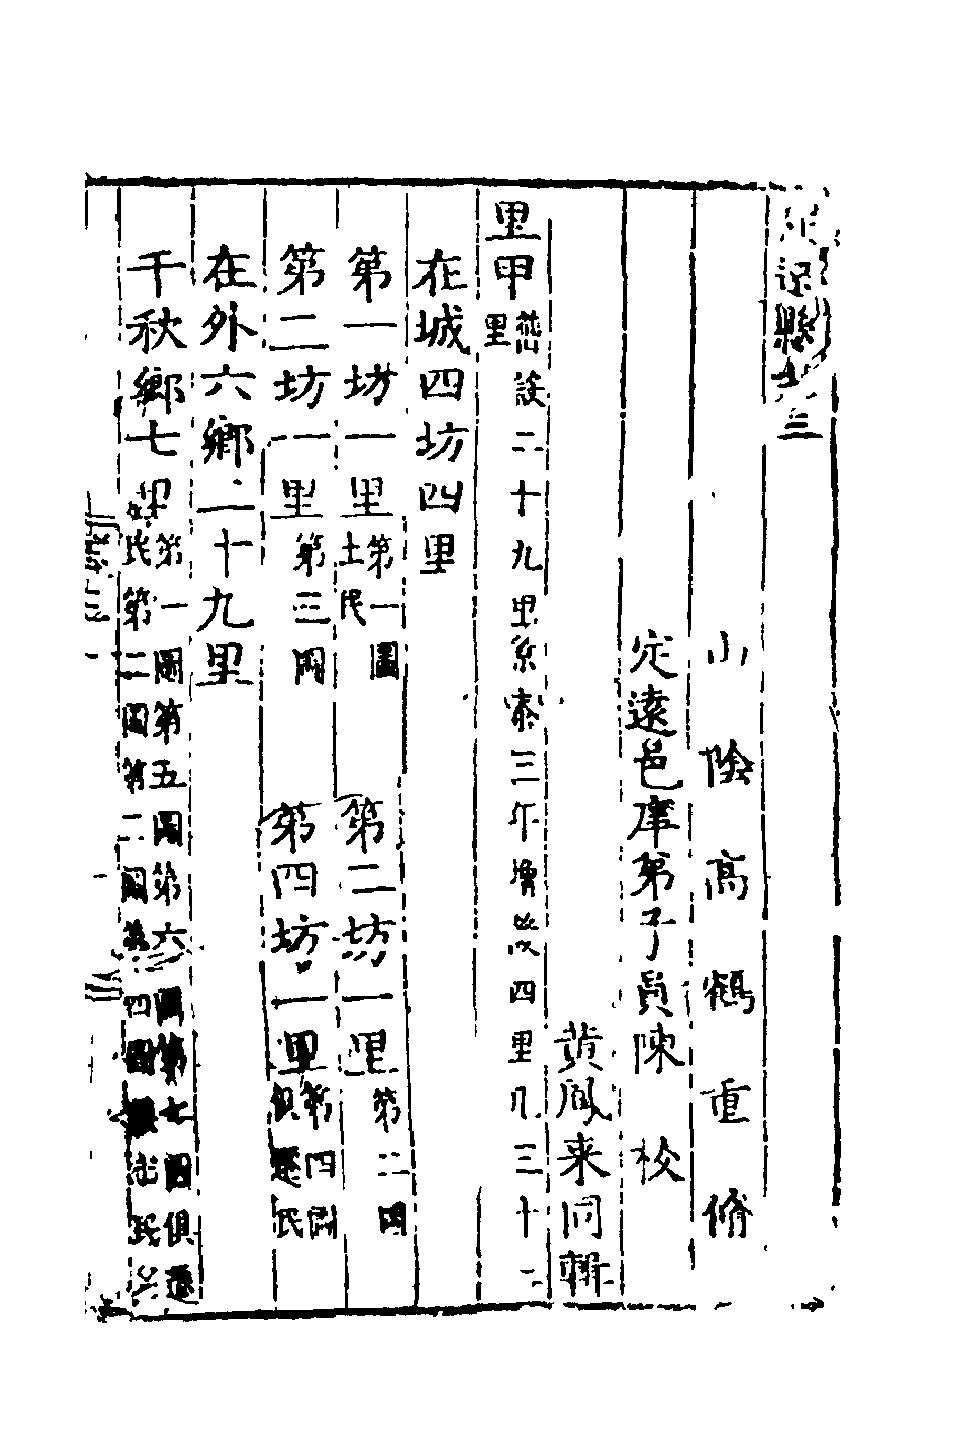 定遠縣志卷三
山陰高鶴重脩
定遠邑庠弟子員陳 校
黄鳳来同輯
里甲 舊設二十九里景泰三年增設四里凡三十二里
在城四坊四里
第一坊一里 第一圖土民 第二坊一里 第二圖
第三坊一里 第三圖 第四坊一里 第四圖俱遷民
在外六鄉二十九里
千秋鄉七里 第一圖第五圖第六圖第七圖俱遷民第二圖第二圖第四圖俱土民